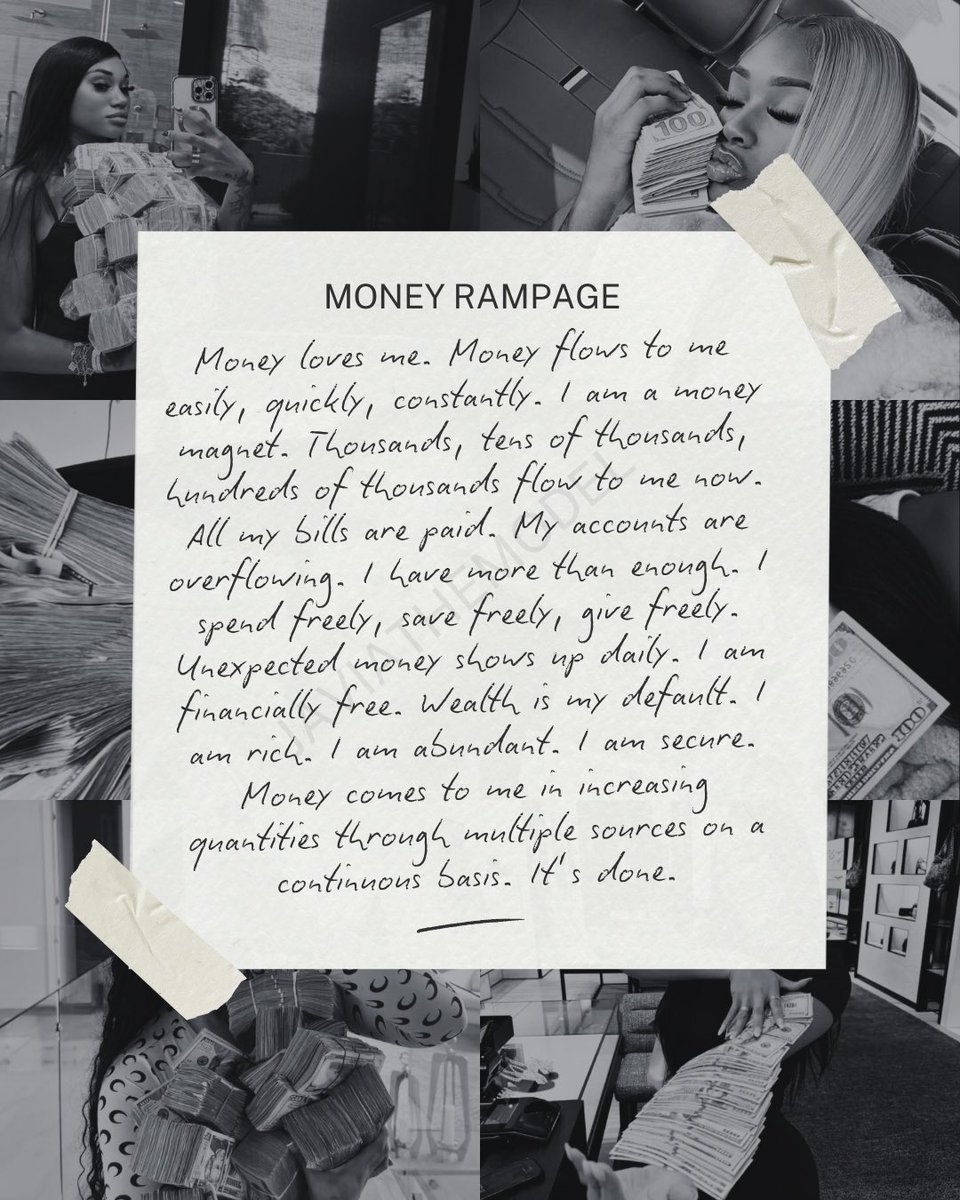 100
MONEY RAMPAGE
Money loves me. Money flows to me
easily, quickly, constantly. I am a money
magnet. Thousands, tens of thousands,
hundreds of thousands flow to me now.
All my bills are paid. My accounts are
overflowing. I have more than enough. I
spend freely, save freely, give freely.
Unexpected money shows up daily. I am
financially free. Wealth is my default. I
am rich. I am abundant. I am secure.
Money comes to me in increasing
quantities through multiple sources on a
continuous basis. It's done.
JAYIATHEMODEL
100